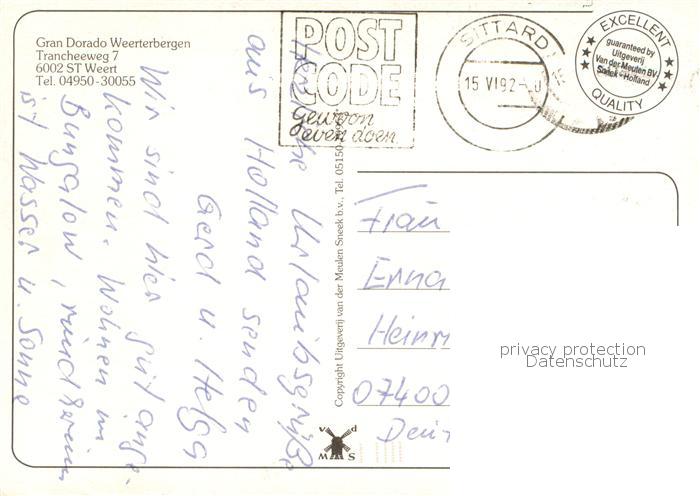 Gran Dorado Weerterbergen
Trancheeweg 7
6002 ST Weert
Tel. 04950-30055
POST
CODE
Gewoon
even doen.
SITTARD
15 VI 92
EXCELLENT
guaranteed by
Uitgeverij
Van der Meulen BV.
Sneek - Holland
QUALITY
Herzliche Urlaubsgrüße
aus Holland senden
Gerd u. Helga
Wir sind hier gut ange-
kommen. Wohnen im
Bungalow, rundherum
ist Wasser u. Sonne
Copyright Uitgeverij van der Meulen Sneek b.v., Tel. 05150-
Frau
Erna
Heinr
07400
v d
M S
privacy protection
Datenschutz